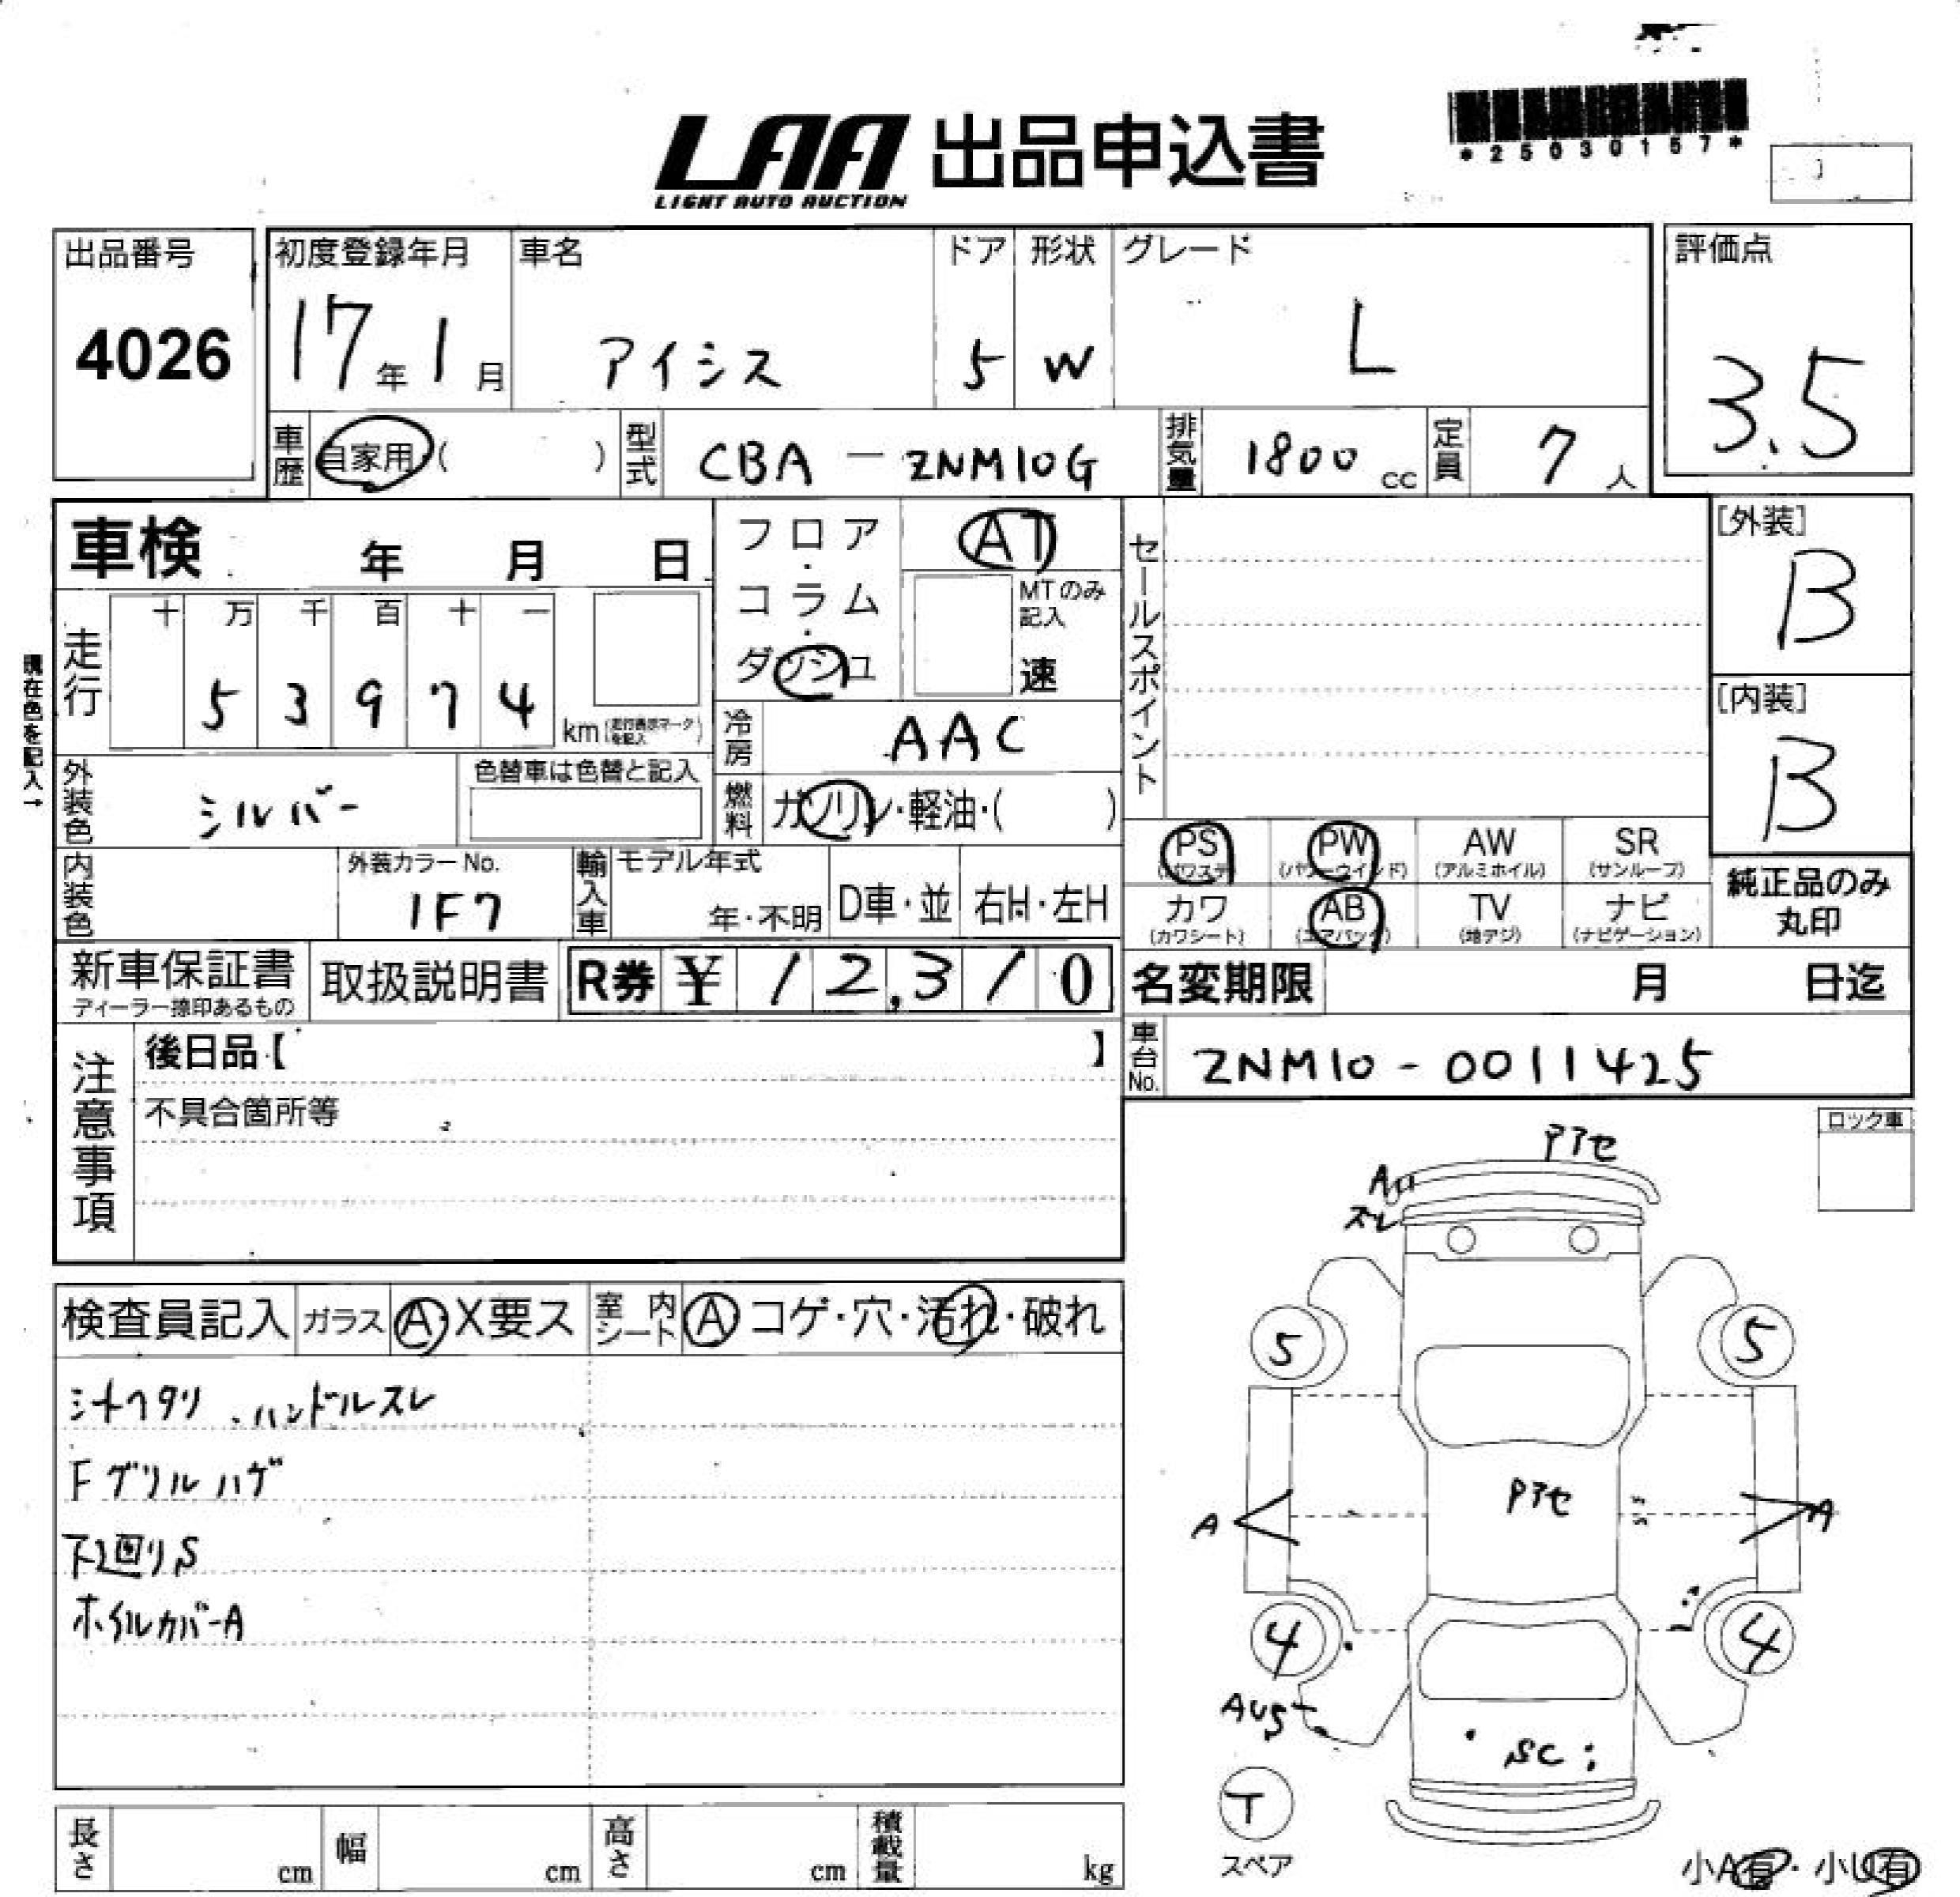 LAA 出品申込書
LIGHT AUTO AUCTION
*25030157*
出品番号
4026
初度登録年月
17年1月
車名
アイシス
ドア
5
形状
W
グレード
L
評価点
3.5
車歴
自家用 ( )
型式
CBA-ZNM10G
排気量
1800 cc
定員
7人
車検 年 月 日
フロア・コラム・ダッシュ
AT
MTのみ記入
速
セールスポイント
[外装]
B
[内装]
B
現在色を記入→
走行
十 万 千 百 十 一
5 3 9 7 4
km (走行表示マークを記入)
冷房
AAC
外装色
シルバー
色替車は色替と記入
燃料
ガソリン・軽油・( )
内装色
外装カラーNo.
1F7
輸入車
モデル年式
年・不明
D車・並
右H・左H
PS (パワステ)
PW (パワーウインド)
AW (アルミホイル)
SR (サンルーフ)
カワ (カワシート)
AB (エアバック)
TV (地デジ)
ナビ (ナビゲーション)
純正品のみ丸印
新車保証書
ディーラー捺印あるもの
取扱説明書
R券 ¥ 12,310
名変期限 月 日迄
車台No.
ZNM10-0011425
注意事項
後日品【 】
不具合箇所等
ロック車
検査員記入
ガラス A・X要ス
室内シート A コゲ・穴・汚れ・破れ
シートヘタリ ハンドルスレ
Fグリルハゲ
下廻りS
ホイルカバーA
Pアセ
A
ズレ
5
5
Pアセ
A
A
4
4
SC
T
スペア
小A有・小U有
長さ cm
幅 cm
高さ cm
積載量 kg